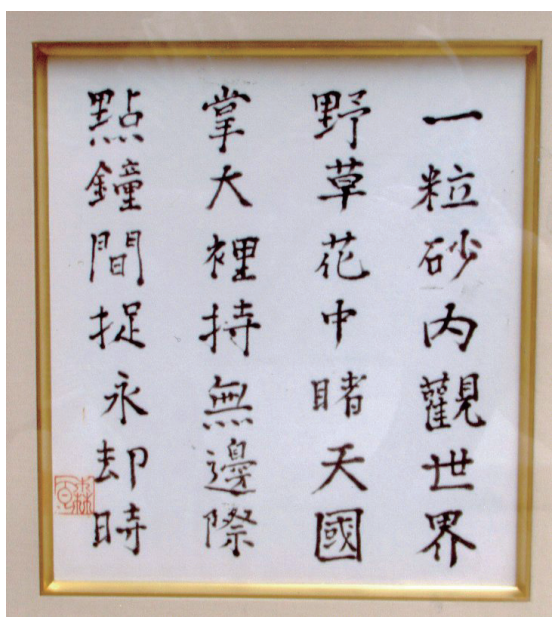 一粒砂內觀世界
野草花中睹天國
掌大裡持無邊際
點鐘間捉永却時